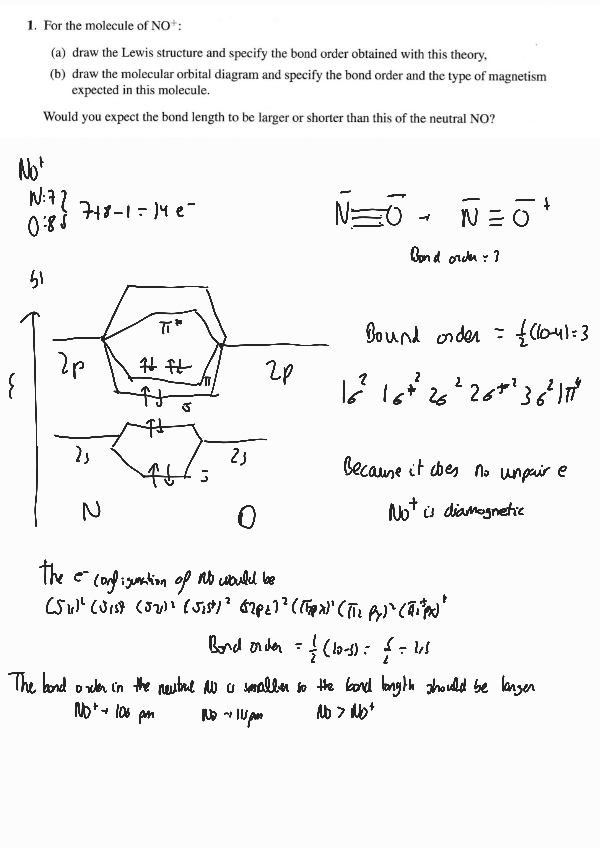 1. For the molecule of NO⁺:
(a) draw the Lewis structure and specify the bond order obtained with this theory,
(b) draw the molecular orbital diagram and specify the bond order and the type of magnetism
expected in this molecule.
Would you expect the bond length to be larger or shorter than this of the neutral NO?
No⁺
N:7
O:8 } 7+8-1=14 e⁻
N≡O → N≡O⁺
Bond order = 3
b)
E
π*
2p
π
2p
σ
2s
2s
N
O
Bound order = 1/2(10-4)=3
1σ² 1σ*² 2σ² 2σ*² 3σ² 1π⁴
Because it does no unpair e
NO⁺ is diamagnetic
The e⁻ configuration of NO would be
Bond order = 1/2 (10-5) = 5/2 = 2,5
The bond order in the neutral NO is smaller so the bond length should be larger
NO⁺ → 106 pm
NO →
pm
NO > NO⁺